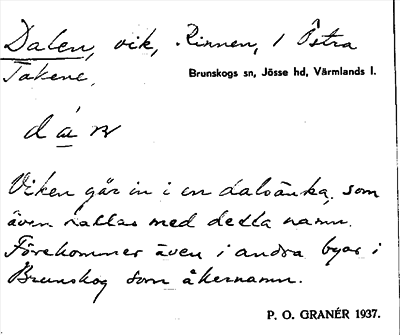 Dalen, vik, Rinnen, i Östra
Takene,
Brunskogs sn, Jösse hd, Värmlands l.
dá
Viken går in i en dalsänka, som
även kallas med detta namn.
Förekommer även i andra byar i
Brunskog som åkernamn.
P. O. GRANÉR 1937.